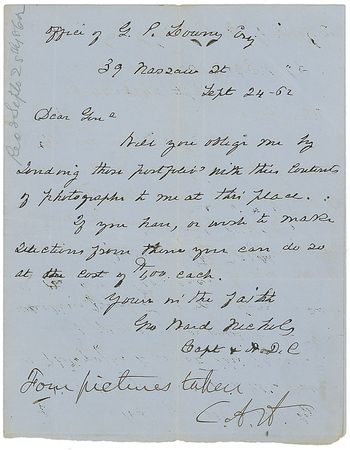 Office of G. P. Lowrey Esq
39 Nassau St
Sept 24-62
Dear Genl
Will you oblige me by
sending those portfolio's with their Contents
of photographs to me at this place.
If you have, or wish to make
selections from them you can do so
at the cost of $1.00 each.
Yours in the faith
Geo Ward Nichols
Capt & A.D.C
Four pictures taken
Recd Sept 25